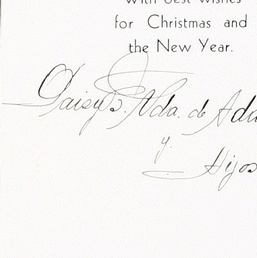 With best wishes
for Christmas and
the New Year.
Daisy S. Vda. de Ada
y
Hijos